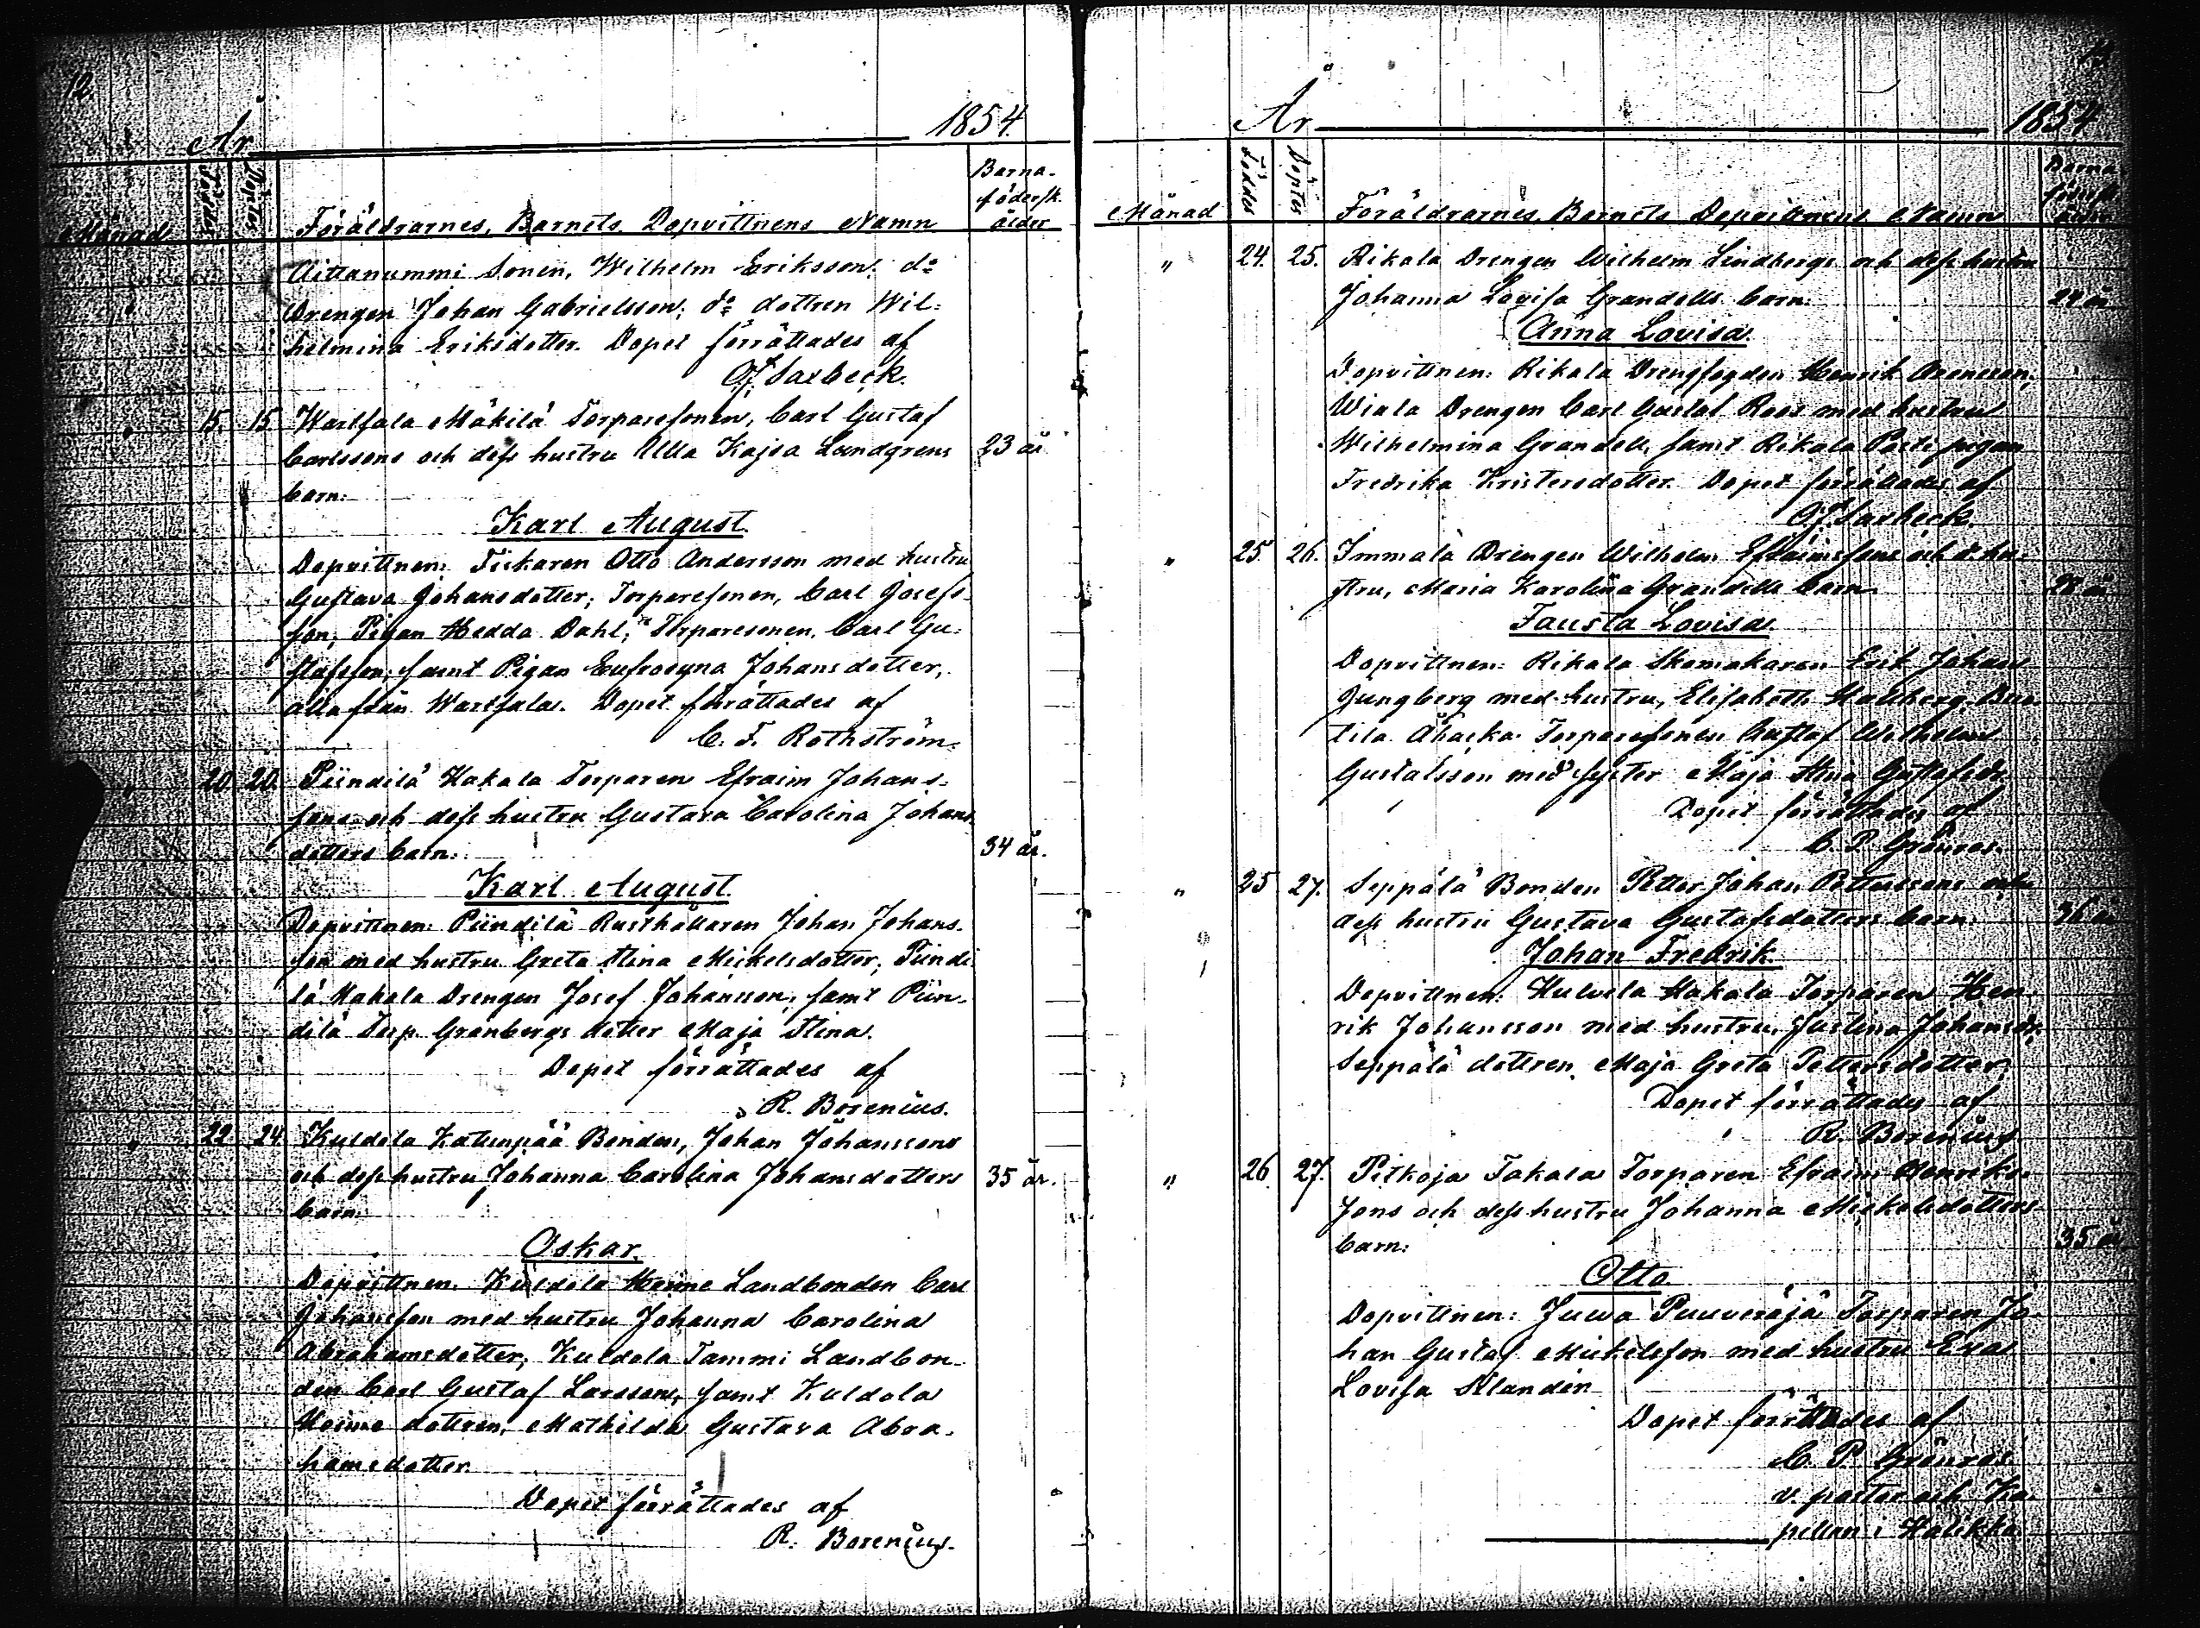 12.
År 1854.
Månad Föddes Döptes Föräldrarnes, Barnets Dopvittnens Namn Barna-födersk. ålder
Aittanummi Sonen, Wilhelm Eriksson; d:o
Drengen Johan Gabrielsson; d:o dottren Wil-
helmina Eriksdotter. Dopet förrättades af
O. J. Saxbeck.
" 15. 15. Wartsala Mäkilä Torparesonen, Carl Gustaf
Carlssons och dess hustru Ulla Kajsa Lundgrens 23 år
barn:
Karl August.
Dopvittnen: Fiskaren Otto Andersson med hustru
Gustava Johansdotter; Torparesonen, Carl Josefs-
son, Pigan Hedda Dahl; Torparesonen, Carl Gu-
stafsson; samt Pigan Eufrosyna Johansdotter,
alla från Wartsala. Dopet förrättades af
C. F. Rothström.
" 20. 20. Piindilä Hakala Torparen Efraim Johans-
sons och dess hustru Gustava Carolina Johans-
dotters barn: 34 år.
Karl August.
Dopvittnen: Piindilä Rusthållaren Johan Johans-
son med hustru Greta Stina Mickelsdotter; Piindi-
lä Hakala Drengen Josef Johansson, samt Piin-
dilä Torp. Granbergs dotter Maja Stina.
Dopet förrättades af
R. Borenius.
" 22. 24. Kuldola Bonden, Johan Johanssons
och dess hustru Johanna Carolina Johansdotters 35 år.
barn:
Oskar.
Dopvittnen: Kuldola Heime Landbonden Carl
Johansson med hustru Johanna Carolina
Abrahamsdotter; Kuldola Tammi Landbon-
den Carl Gustaf Larsson, samt Kuldola
Heime dottren, Mathilda Gustava Abra-
hamsdotter.
Dopet förrättades af
R. Borenius.
År 1854
Månad Föddes Döptes Föräldrarnes, Barnets Dopvittnens Namn Barna födersk. ålder
" 24. 25. Rikala Drengen Wilhelm Lindbergs och dess hustru
Johanna Lovisa Grandells barn: år
Anna Lovisa.
Dopvittnen: Rikala Drengfogden Henrik
Wiala Drengen Carl Gustaf Roos med hustru
Wilhelmina Grandell, samt Rikala pigan
Fredrika Kristersdotter. Dopet förrättades af
O. J. Saxbeck.
" 25. 26. Immala Drengen Wilhelm Efraimssons och d. hu-
stru, Maria Karolina Grandells barn 28 år
Fausta Lovisa.
Dopvittnen: Rikala Skomakaren Erik Johan
Ljungberg med hustru, Elisabeth
tila Torparesonen Gustaf Wilhelm
Gustafsson med syster Maja Stina Gustafsdr.
Dopet förrättades af
C. P. Grönroos.
" 25 27. Seppälä Bonden Petter Johan Petterssons och
dess hustru Gustava Gustafsdotters barn: 36 år
Johan Fredrik.
Dopvittnen: Hakala Torparen Hen-
rik Johansson med hustru, Justina Johansdr,
Seppälä dottren, Maja Greta Pettersdotter.
Dopet förrättades af
R. Borenius
" 26. 27. Pitkoja Takala Torparen Efraim Henriks-
sons och dess hustru Johanna Mickelsdotters
barn: 35 år
Otto.
Dopvittnen: Juwa Torparen Jo-
han Gustaf Mickelsson med hustru Eva
Lovisa Silandén
Dopet förrättades af
C. P. Grönroos.
v. pastor och Ka-
pellan i Halikko